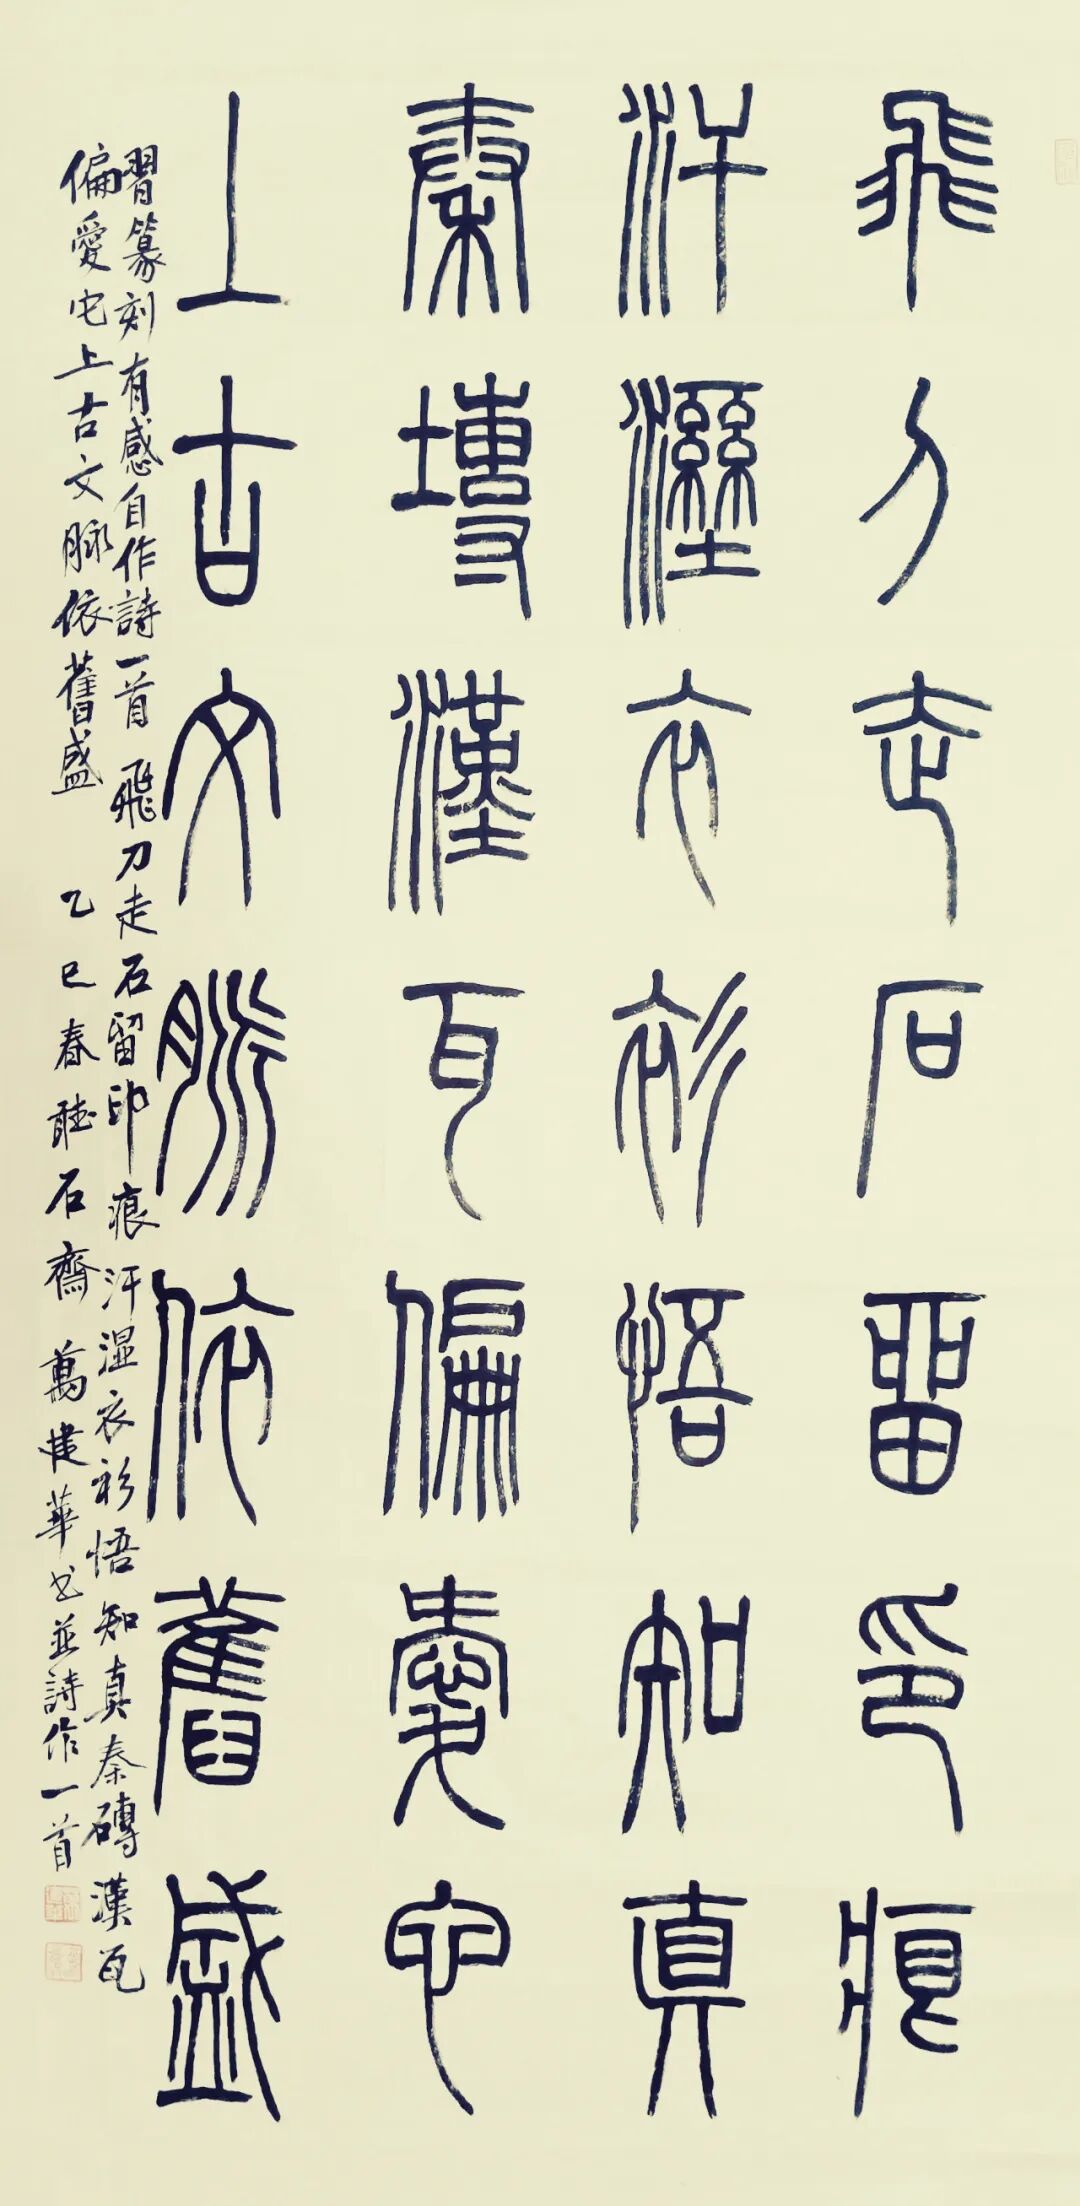 飛刀走石留印痕
汗溼衣衫悟知真
秦塼漢瓦偏愛它
上古文脈依舊盛
習篆刻有感自作詩一首 飛刀走石留印痕 汗湿衣衫悟知真秦磚漢瓦
偏愛它上古文脉依舊盛 乙巳春聽石齋 萬建華书並詩作一首